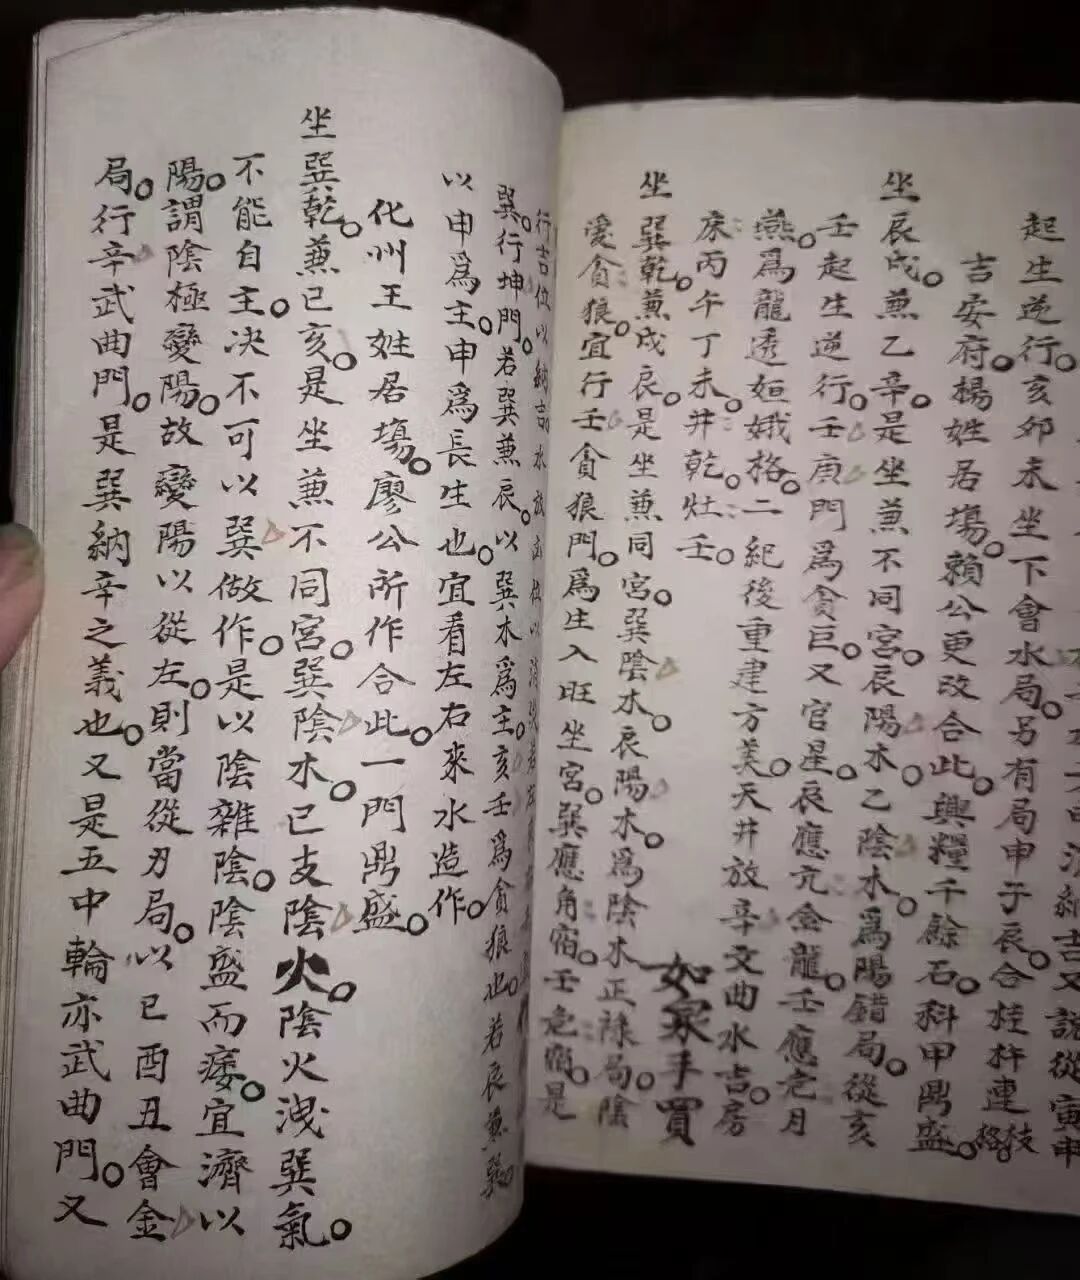 起生逆行。亥卯未坐下會水局。另有局申子辰。合桂杵連枝格。
吉安府。楊姓居塲。賴公更改合此。興糧千餘石。科甲鼎盛。
坐辰戌。兼乙辛。是坐兼不同宮。辰陽木。乙陰木。爲陽錯局。從亥
壬起生逆行。壬庚門爲貪巨。又官星。辰應亢金龍。壬應危月
燕。爲龍透姮娥格。二紀後重建方美。天井放辛文曲水吉。房
床丙午丁未。井乾。灶壬。
如家手買
坐巽乾。兼戌辰。是坐兼同宮。巽陰木。辰陽木。爲陰木正祿局。陰
愛貪狼。宜行壬貪狼門。爲生入旺坐宮。巽應角宿。壬危宿。是
行吉位以納吉水放
巽。行坤門。若巽兼辰。以巽木爲主。亥壬爲貪狼也。若辰兼巽
以申爲主。申爲長生也。宜看左右來水造作。
化州王姓居塲。廖公所作合此。一門鼎盛。
坐巽乾。兼已亥。是坐兼不同宮。巽陰木。已支陰火。陰火洩巽氣。
不能自主。决不可以巽做作。是以陰雜陰。陰盛而痿。宜濟以
陽。謂陰極變陽。故變陽以從左。則當從刃局。以已酉丑會金
局。行辛武曲門。是巽納辛之義也。又是五中輪亦武曲門。又